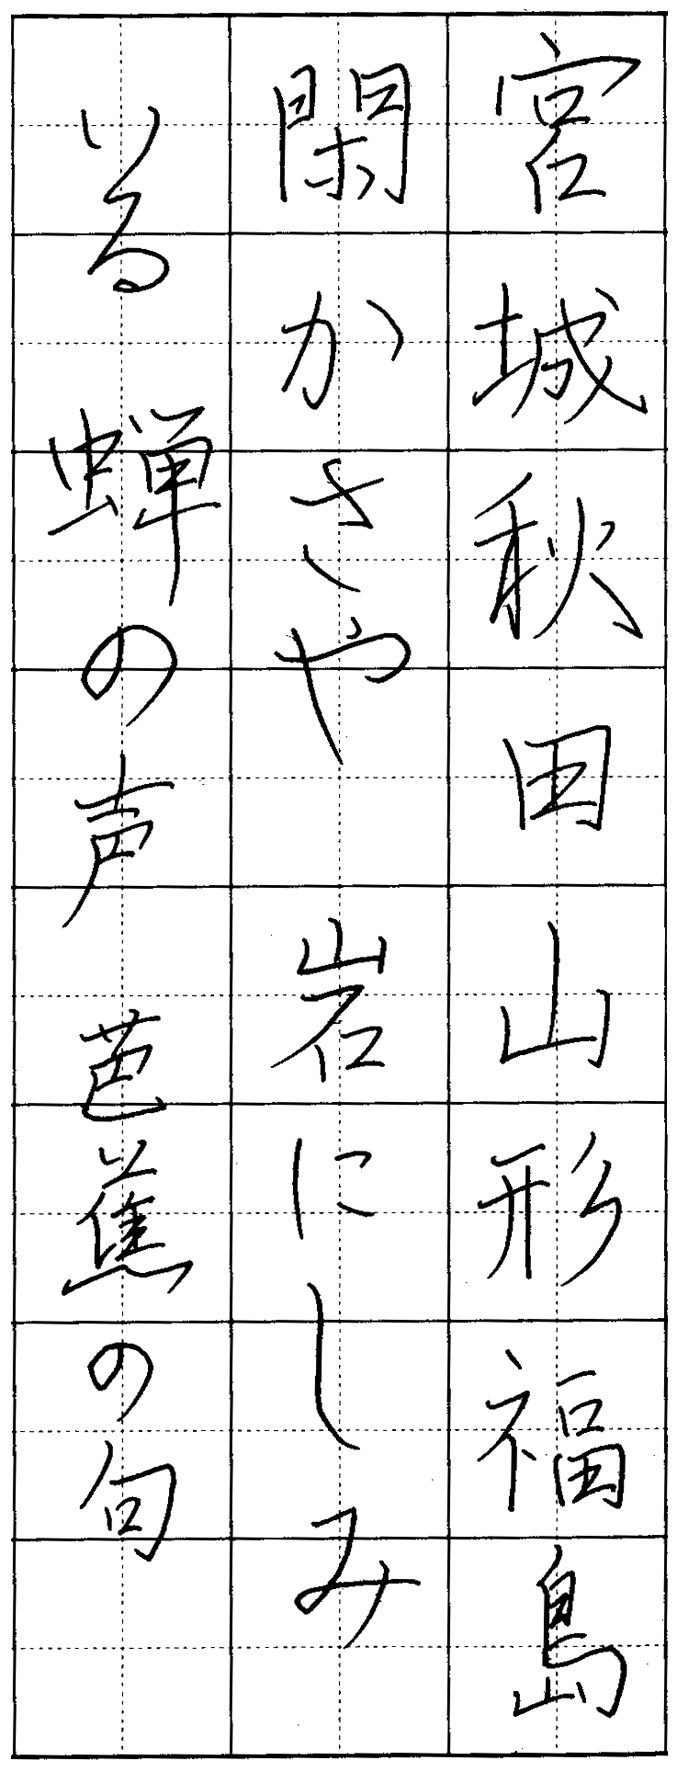 宮城秋田山形福島
閑かさや 岩にしみ
いる蝉の声 芭蕉の句